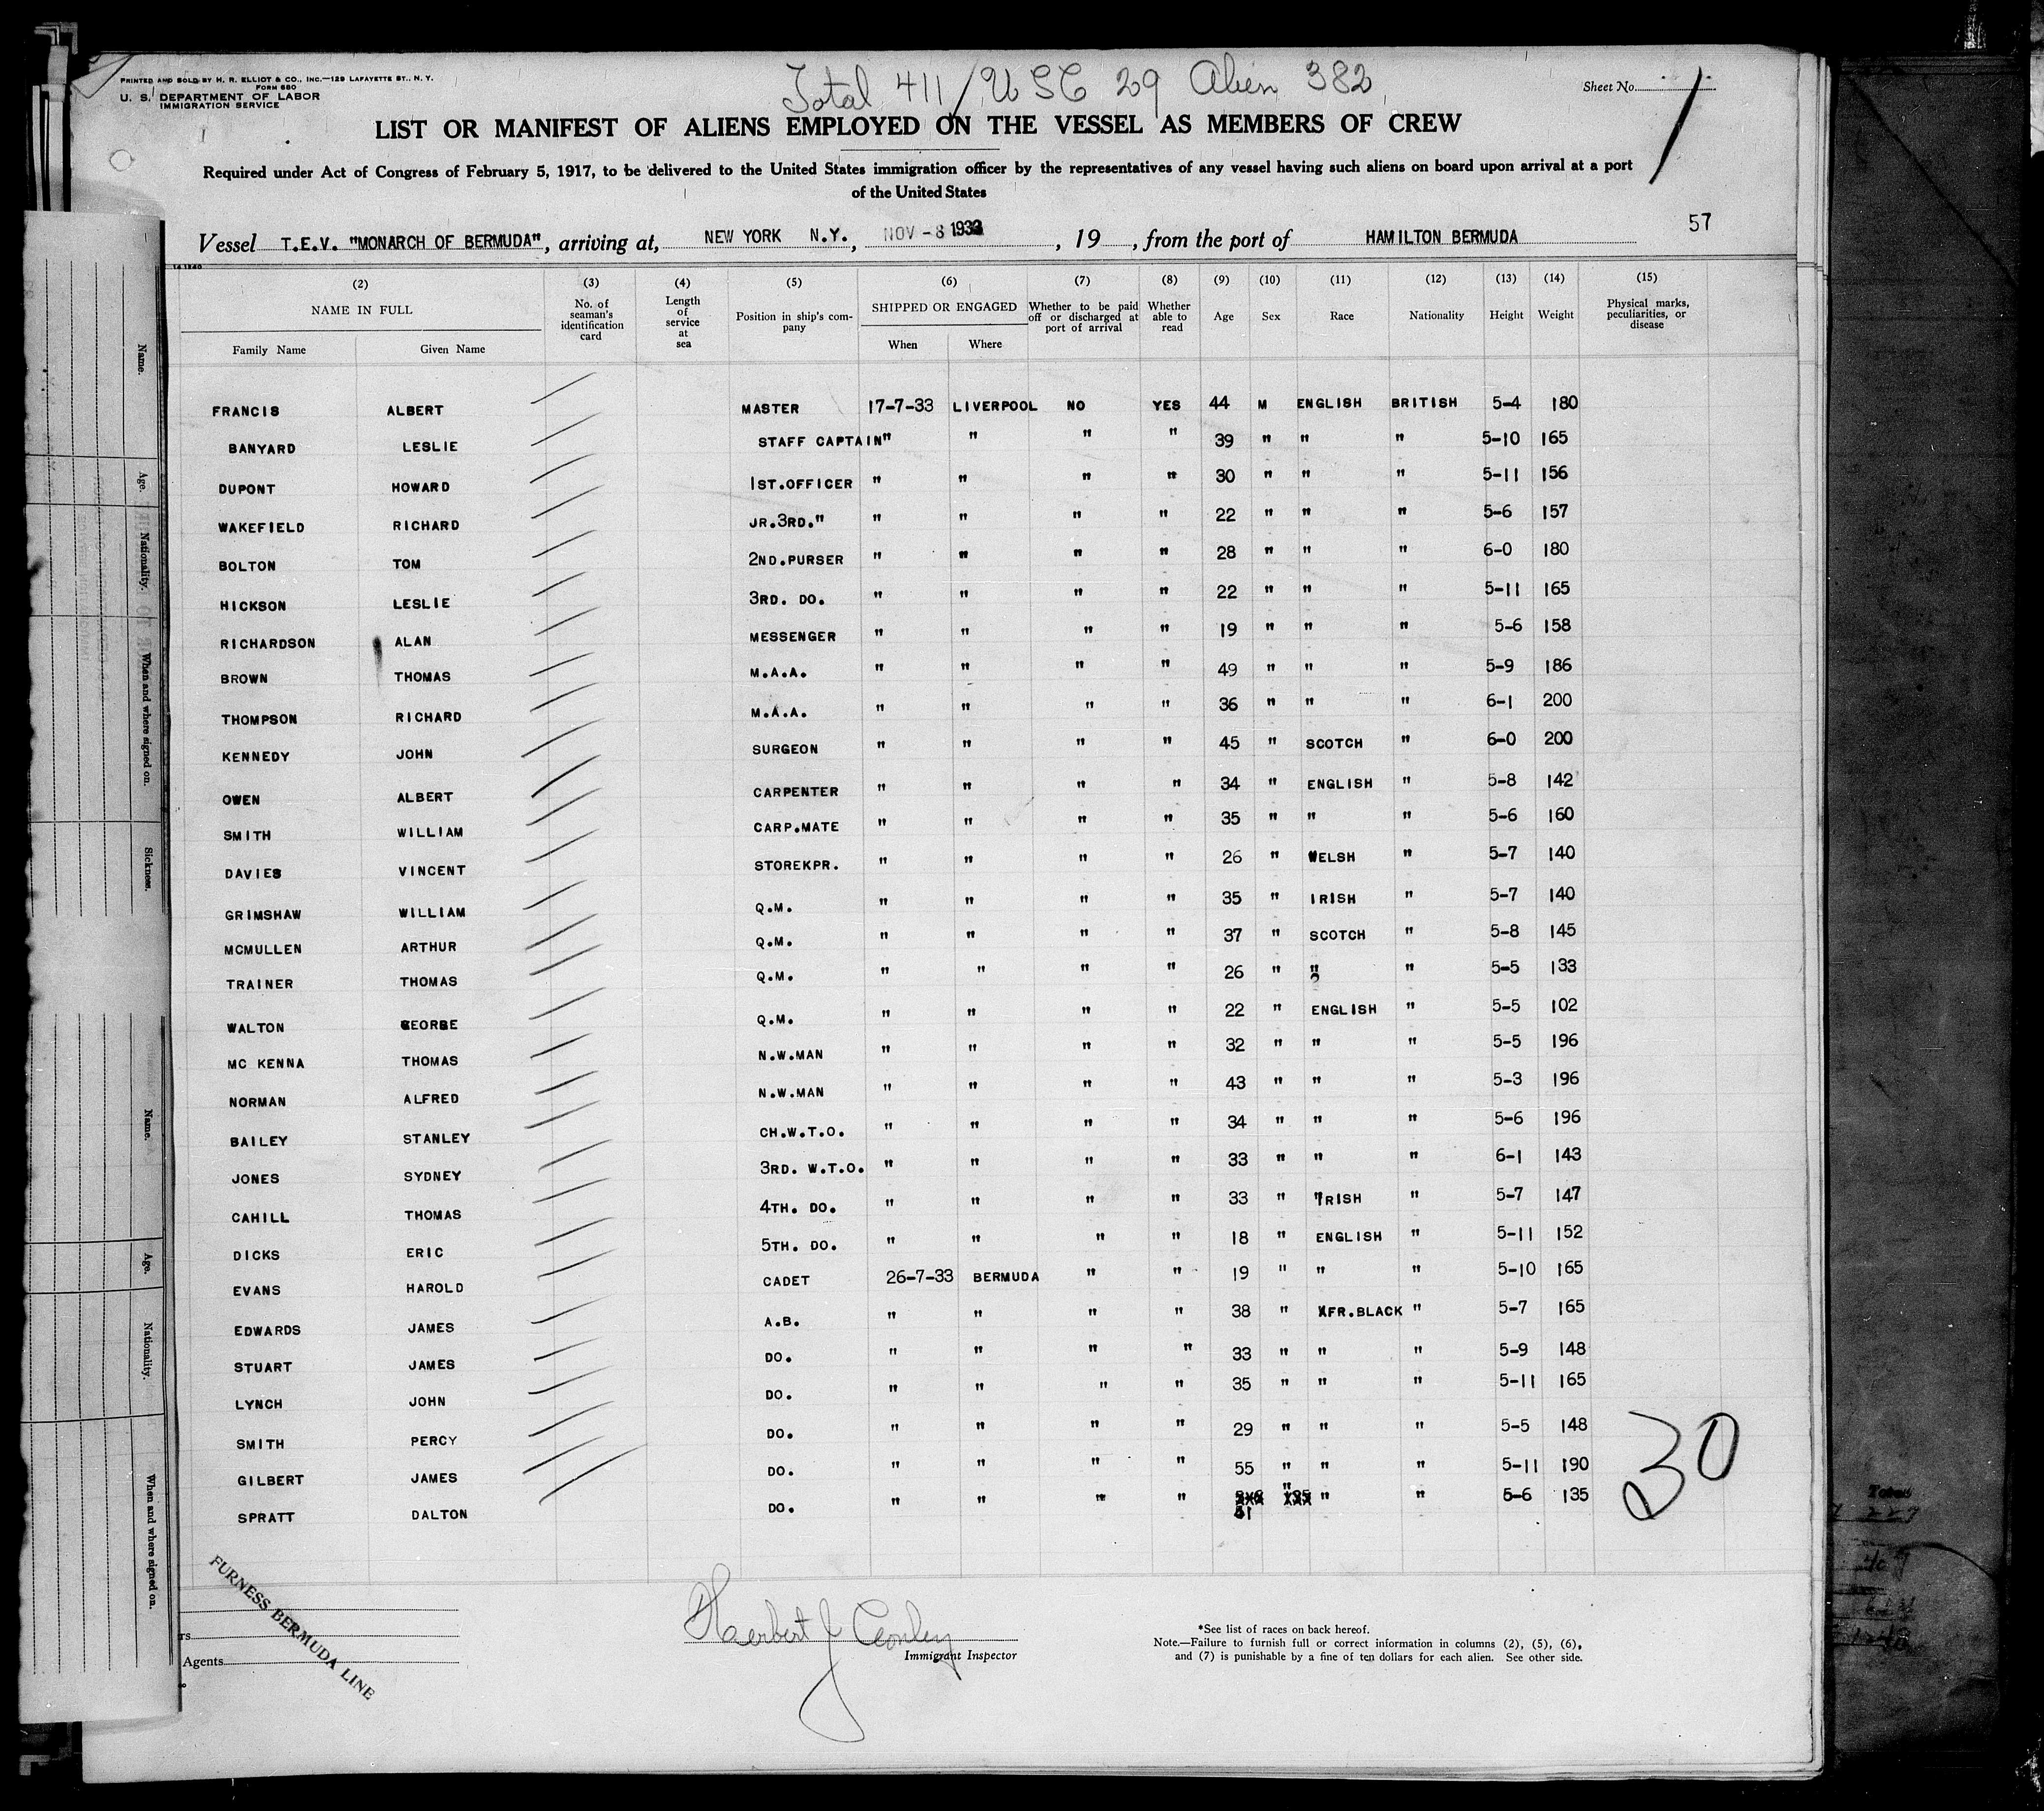 PRINTED AND SOLD BY H. R. ELLIOT & CO., INC.—129 LAFAYETTE ST., N. Y.
FORM 680
U. S. DEPARTMENT OF LABOR
IMMIGRATION SERVICE
Total 411/USC 29 Alien 382
Sheet No. 1
LIST OR MANIFEST OF ALIENS EMPLOYED ON THE VESSEL AS MEMBERS OF CREW
Required under Act of Congress of February 5, 1917, to be delivered to the United States immigration officer by the representatives of any vessel having such aliens on board upon arrival at a port
of the United States
57
Vessel T.E.V. "MONARCH OF BERMUDA", arriving at, NEW YORK N.Y., NOV -8 1933, 19 , from the port of HAMILTON BERMUDA
(2) (3) (4) (5) (6) (7) (8) (9) (10) (11) (12) (13) (14) (15)
NAME IN FULL No. of seaman's identification card Length of service at sea Position in ship's company SHIPPED OR ENGAGED Whether to be paid off or discharged at port of arrival Whether able to read Age Sex Race Nationality Height Weight Physical marks, peculiarities, or disease
Family Name Given Name When Where
FRANCIS ALBERT MASTER 17-7-33 LIVERPOOL NO YES 44 M ENGLISH BRITISH 5-4 180
BANYARD LESLIE STAFF CAPTAIN " " " " 39 " " " 5-10 165
DUPONT HOWARD 1ST.OFFICER " " " " 30 " " " 5-11 156
WAKEFIELD RICHARD JR.3RD." " " " " 22 " " " 5-6 157
BOLTON TOM 2ND.PURSER " " " " 28 " " " 6-0 180
HICKSON LESLIE 3RD. DO. " " " " 22 " " " 5-11 165
RICHARDSON ALAN MESSENGER " " " " 19 " " " 5-6 158
BROWN THOMAS M.A.A. " " " " 49 " " " 5-9 186
THOMPSON RICHARD M.A.A. " " " " 36 " " " 6-1 200
KENNEDY JOHN SURGEON " " " " 45 " SCOTCH " 6-0 200
OWEN ALBERT CARPENTER " " " " 34 " ENGLISH " 5-8 142
SMITH WILLIAM CARP.MATE " " " " 35 " " " 5-6 160
DAVIES VINCENT STOREKPR. " " " " 26 " WELSH " 5-7 140
GRIMSHAW WILLIAM Q.M. " " " " 35 " IRISH " 5-7 140
MCMULLEN ARTHUR Q.M. " " " " 37 " SCOTCH " 5-8 145
TRAINER THOMAS Q.M. " " " " 26 " " " 5-5 133
WALTON GEORGE Q.M. " " " " 22 " ENGLISH " 5-5 102
MC KENNA THOMAS N.W.MAN " " " " 32 " " " 5-5 196
NORMAN ALFRED N.W.MAN " " " " 43 " " " 5-3 196
BAILEY STANLEY CH.W.T.O. " " " " 34 " " " 5-6 196
JONES SYDNEY 3RD. W.T.O. " " " " 33 " " " 6-1 143
CAHILL THOMAS 4TH. DO. " " " " 33 " IRISH " 5-7 147
DICKS ERIC 5TH. DO. " " " " 18 " ENGLISH " 5-11 152
EVANS HAROLD CADET 26-7-33 BERMUDA " " 19 " " " 5-10 165
EDWARDS JAMES A.B. " " " " 38 " AFR.BLACK " 5-7 165
STUART JAMES DO. " " " " 33 " " " 5-9 148
LYNCH JOHN DO. " " " " 35 " " " 5-11 165
SMITH PERCY DO. " " " " 29 " " " 5-5 148
GILBERT JAMES DO. " " " " 55 " " " 5-11 190
SPRATT DALTON DO. " " " " " " " 5-6 135
30
FURNESS BERMUDA LINE
rs
Agents
Immigrant Inspector
*See list of races on back hereof.
Note.—Failure to furnish full or correct information in columns (2), (5), (6), and (7) is punishable by a fine of ten dollars for each alien. See other side.
Name.
Age.
Nationality.
When and where signed on.
Sickness.
Name.
Age.
Nationality.
When and where signed on.